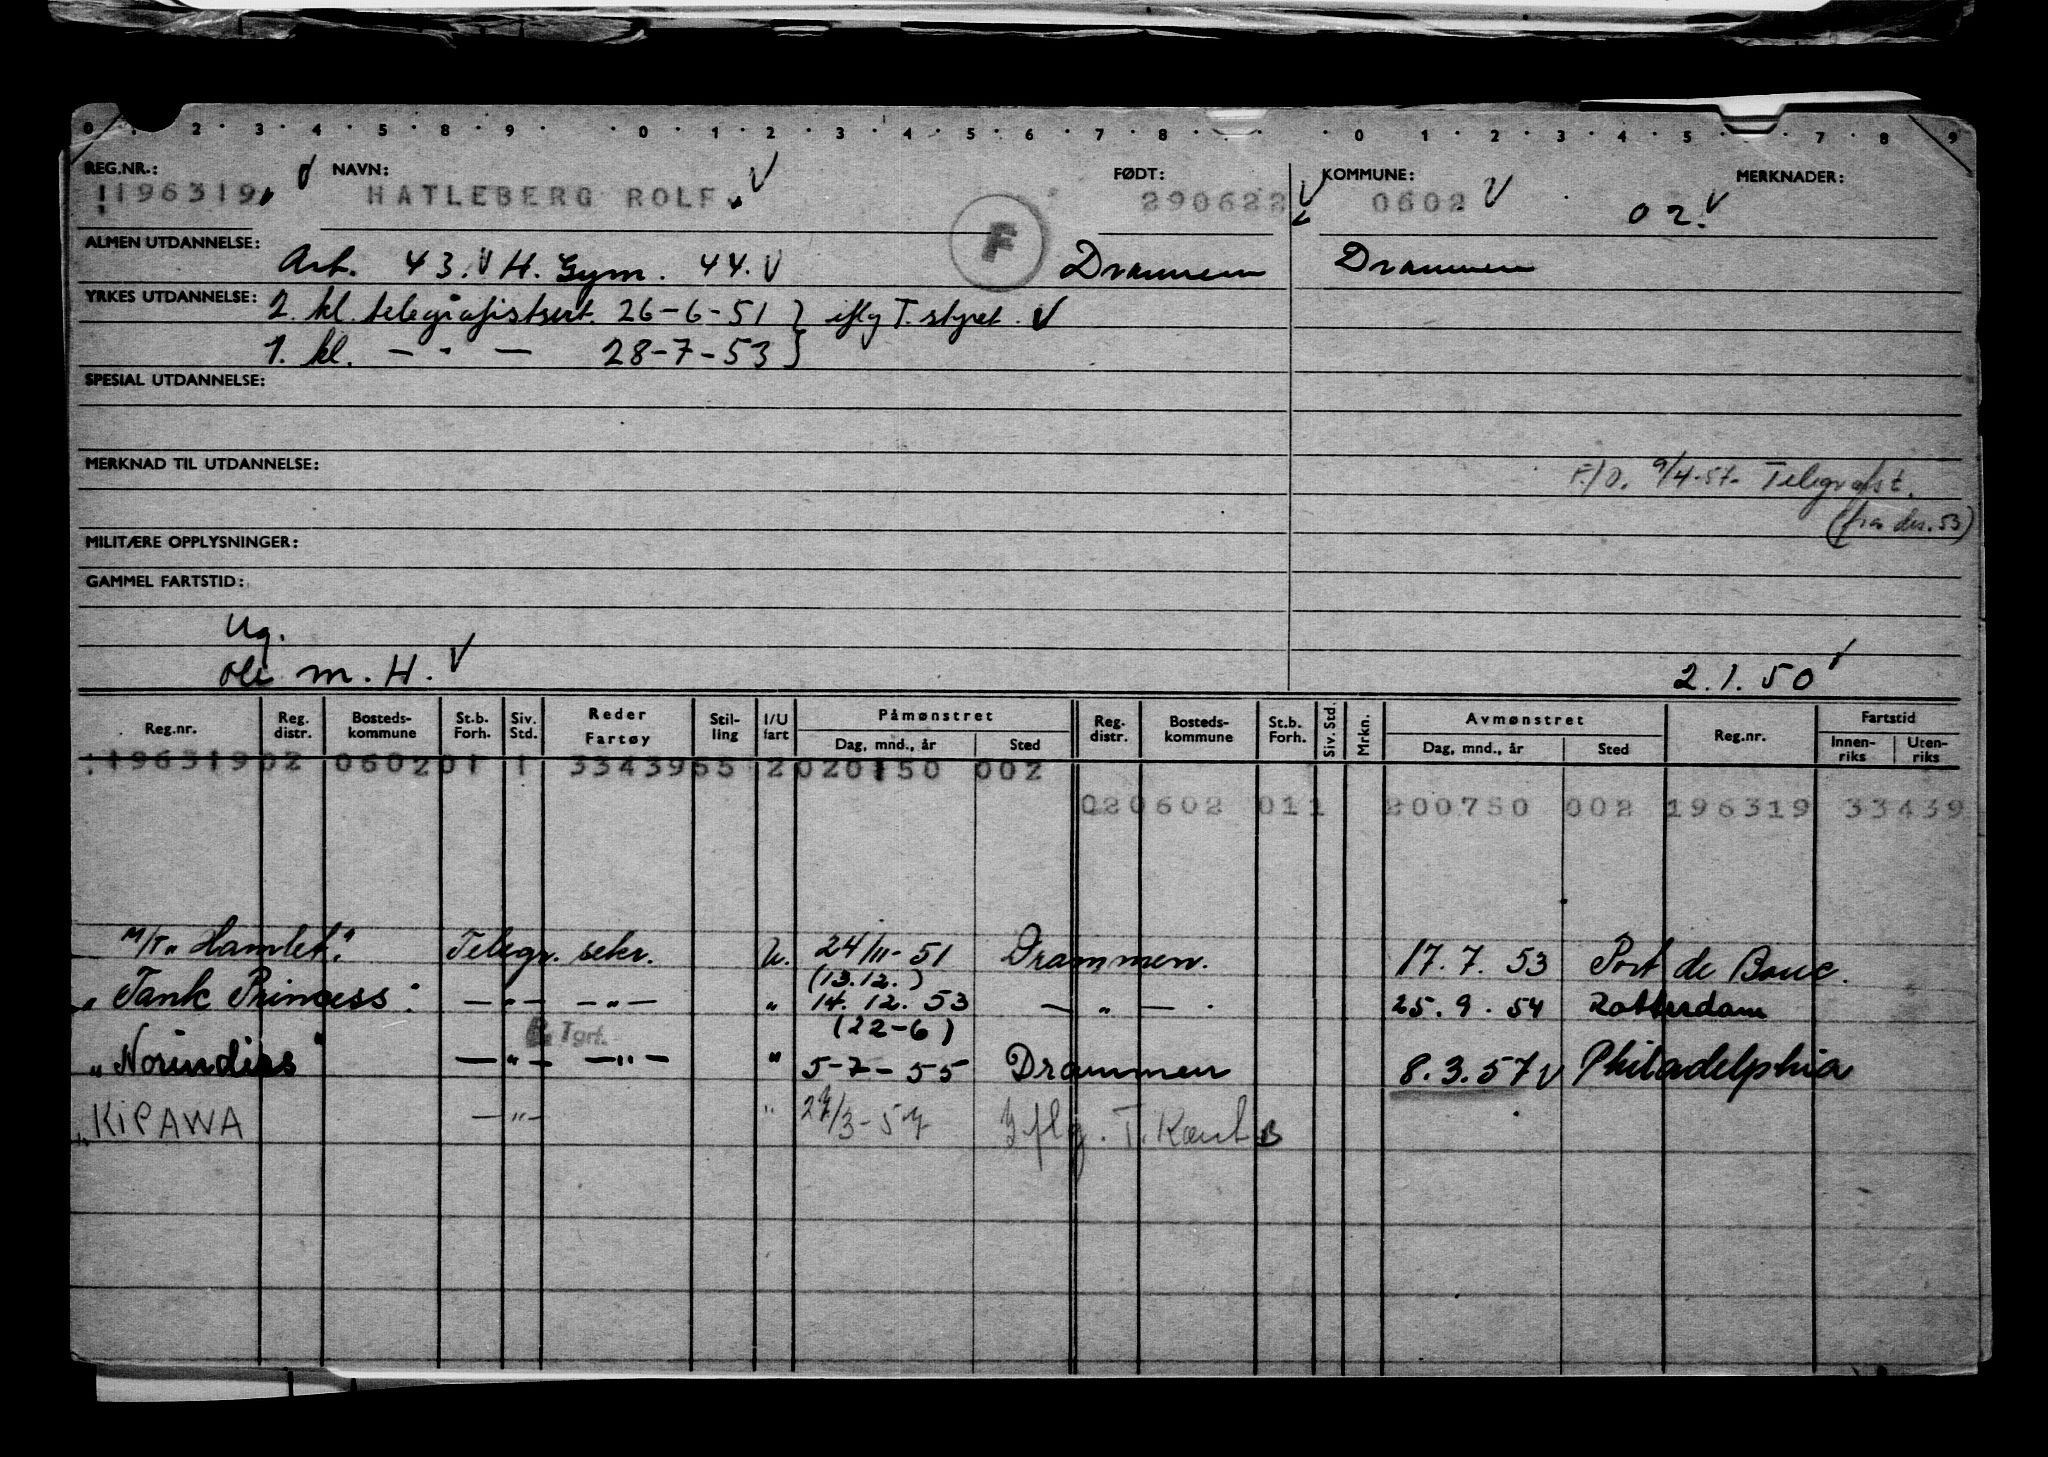 0 . 2 . 3 . 4 . 5 . 8 . 9 . . 0 . 1 . 2 . 3 . 4 . 5 . 6 . 7 . 8 . . 0 . 1 . 2 . 3 . 4 . 5 . 7 . 8 . 9
REG.NR.: NAVN: FØDT: KOMMUNE: MERKNADER:
196319 HATLEBERG ROLF 290622 0602 02.
ALMEN UTDANNELSE: Art. 43. H. Gym. 44. F Drammen Drammen
YRKES UTDANNELSE: 2. kl. telegrafistsert. 26-6-51 } iflg T. styret.
1. kl. — " — 28-7-53 }
SPESIAL UTDANNELSE:
MERKNAD TIL UTDANNELSE:
F/O. 9/4-57. Telegrafist.
(fra des. 53)
MILITÆRE OPPLYSNINGER:
GAMMEL FARTSTID:
Ug.
ole m. H. 2.1.50
Reg.nr. Reg. distr. Bosteds-kommune St.b. Forh. Siv. Std. Reder Fartøy Stil-ling I/U fart Påmønstret Dag, mnd., år Sted Reg. distr. Bosteds-kommune St.b. Forh. Siv. Std. Mrkn. Avmønstret Dag, mnd., år Sted Reg.nr. Fartstid Innen-riks Uten-riks
196319 02 0602 01 1 33439 55 2 020150 002
02 0602 01 1 200750 002 196319 33439
M/T "Hamlet" Telegr. sekr. U. 24/11-51 Drammen. 17.7.53 Port de Bouc.
(13.12.)
" Tank Princess" — " — — " — " 14.12.53 — " — 25.9.54 Rotterdam
(22-6)
Tgrf.
" Norindies" — " — — " — " 5-7-55 Drammen 8.3.57 Philadelphia
" KIPAWA — " — " 27/3-57 Iflg. T. Kart B